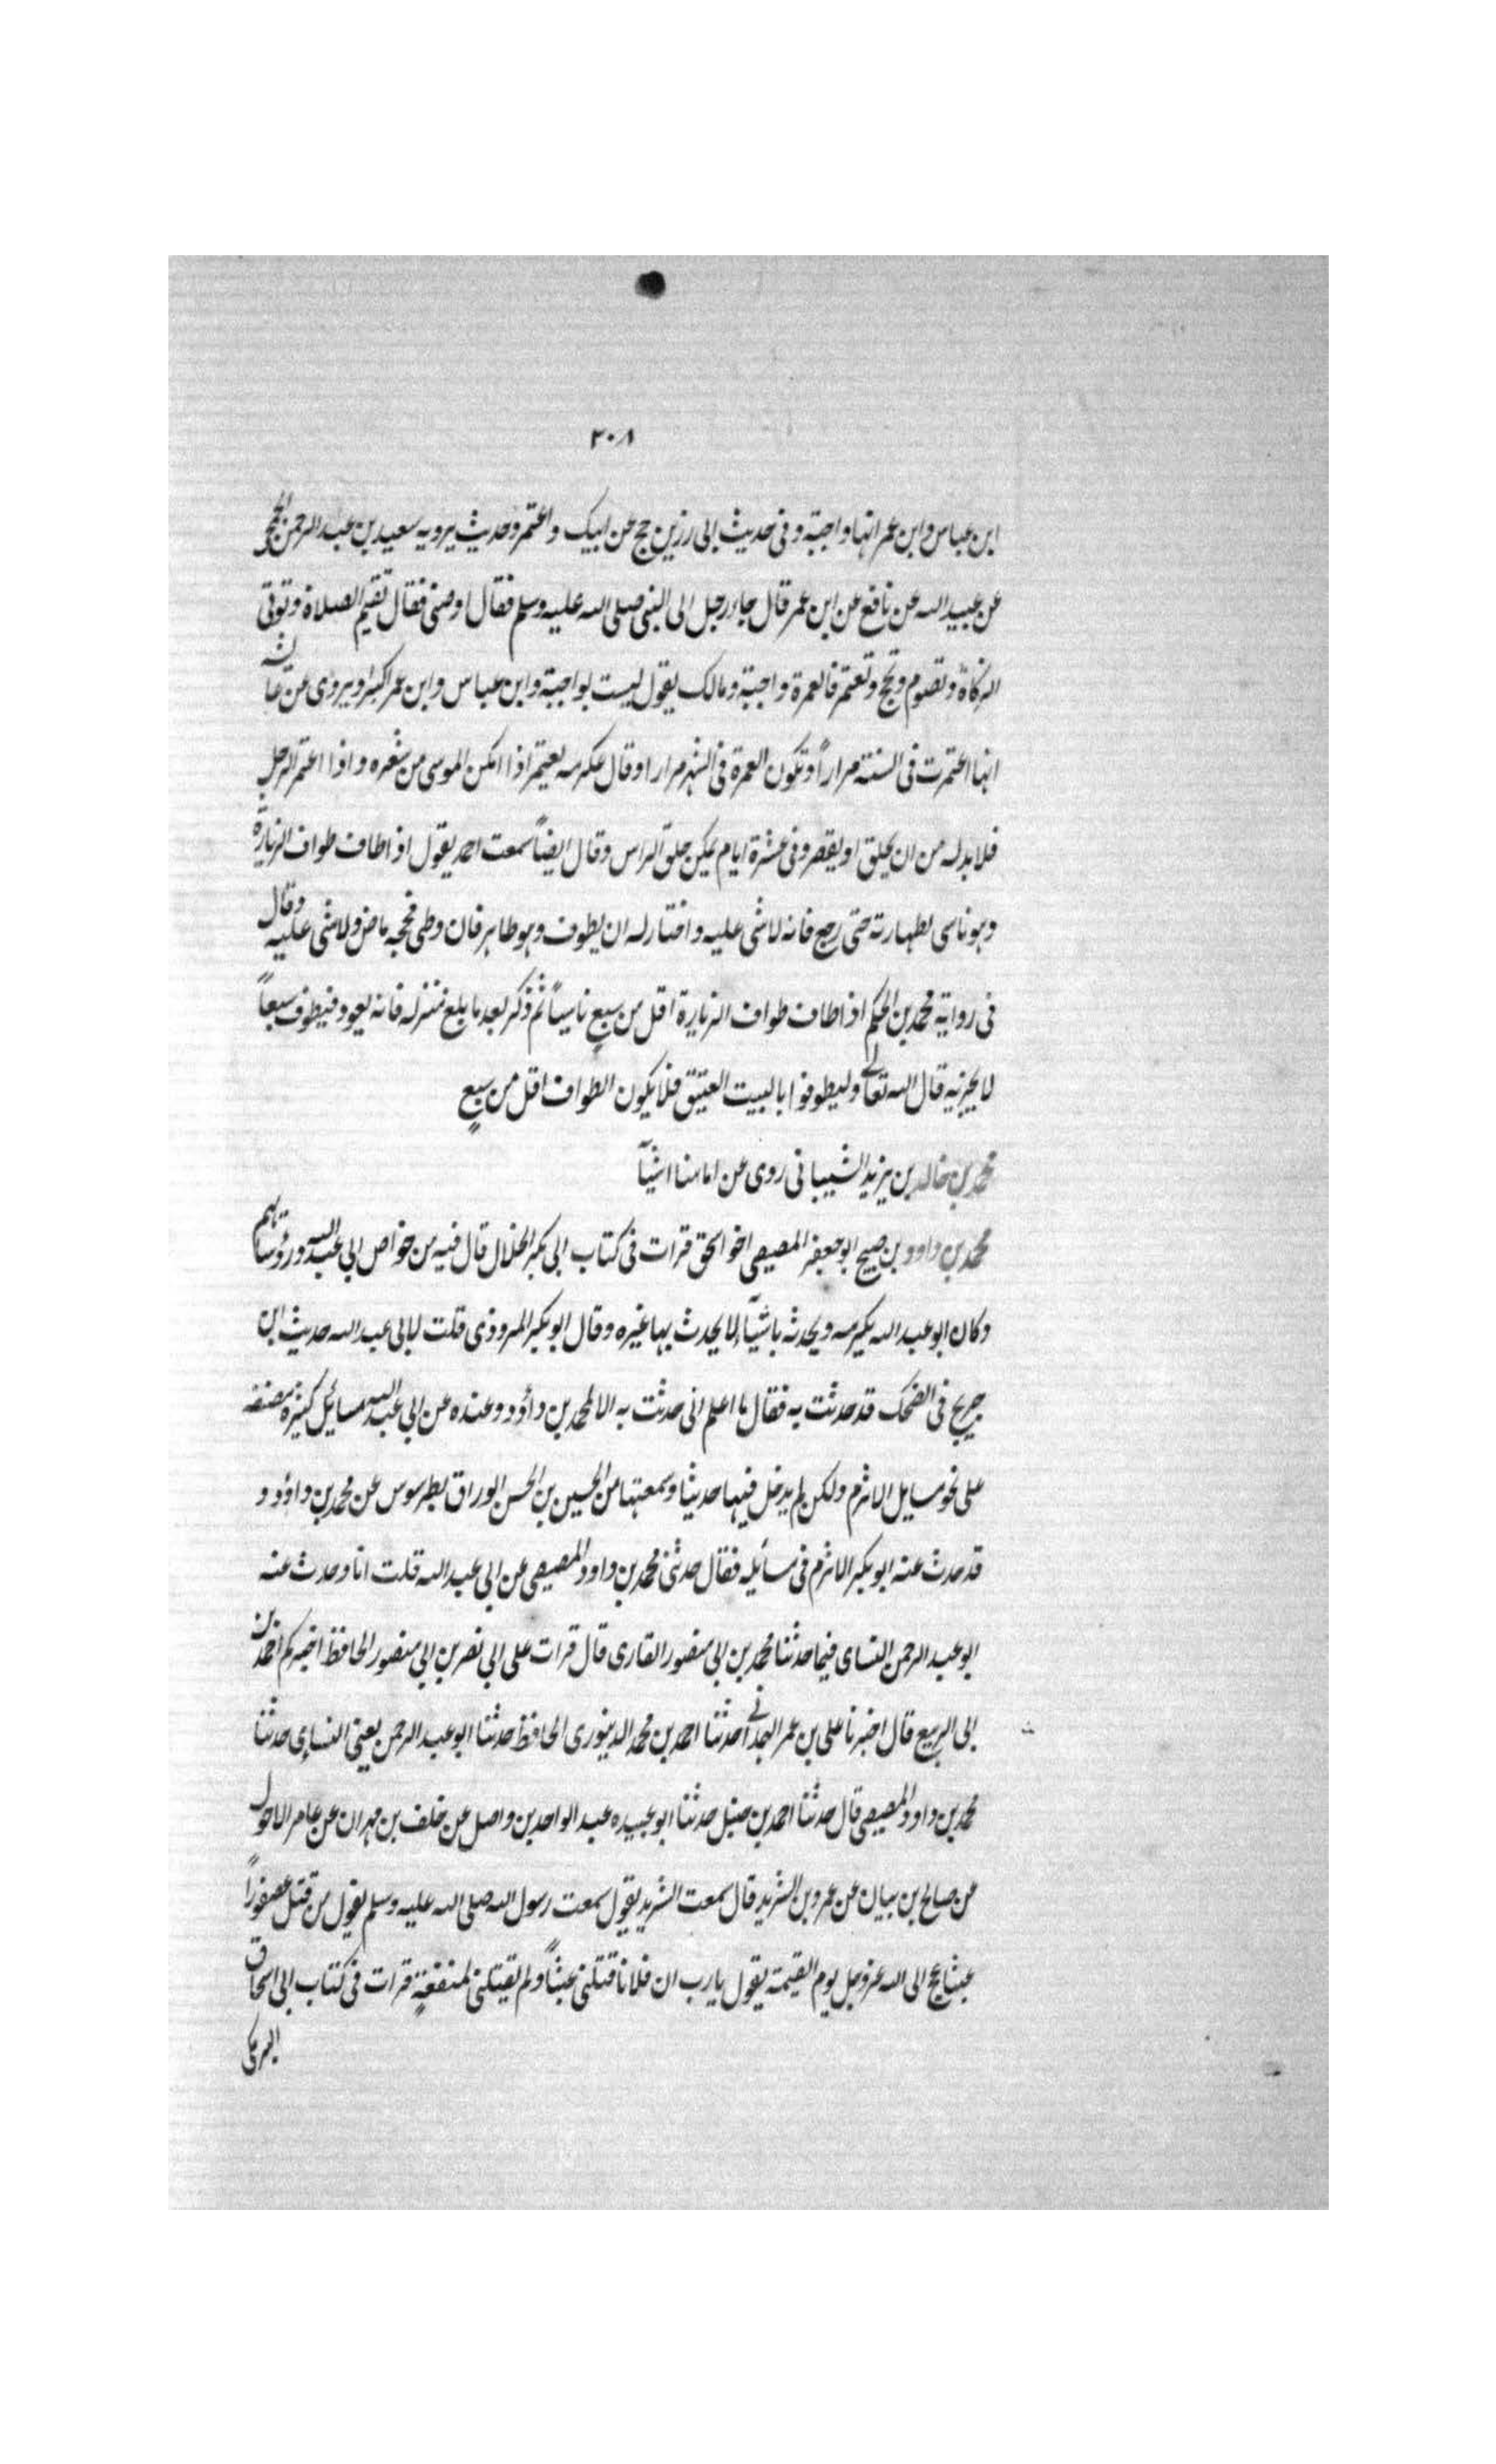 ٣٠٨
ابن عباس وابن عمر انها واجبة وفى حديث ابى رزين حج عن ابيك واعتمر وحديث يرويه سعيد بن عبد الرحمن الجمحى
عن عبيد الله عن نافع عن ابن عمر قال جاء رجل الى النبى صلى الله عليه وسلم فقال اوصنى فقال تقيم الصلاة وتوتى
الزكاة وتصوم وتحج وتعتمر فالعمرة واجبة ومالك يقول ليست بواجبة وابن عباس وابن عمر اكبر ويروى عن عائشة
انها اعتمرت فى السنة مراراً وتكون العمرة فى الشهر مرارا وقال عكرمه يعتمر اذا امكن الموسى من شعره واذا اعتمر الرجل
فلا بد له من ان يحلق او يقصر وفى عشرة ايام يمكن حلق الراس وقال ايضاً سمعت احمد يقول اذا طاف طواف الزيارة
وهو ناسى لطهارته حتى رجع فانه لا شى عليه واختار له ان يطوف وهو طاهر فان وطى فحجه ماض ولا شى عليه وقال
فى رواية محمد بن الحكم اذا طاف طواف الزيارة اقل من سبعٍ ناسياً ثم ذكر بعد ما بلغ منزله فانه يعود فيطوف سبعاً
لا يجزيه قال الله تعالى وليطوفوا بالبيت العتيق فلا يكون الطواف اقل من سبعٍ
محمد بن خالد بن يزيد الشيبانى روى عن امامنا اشيآ
محمد بن داود بن صبيح ابو جعفر المصيصى اخو اسحق قرات فى كتاب ابى بكر الخلال قال فيه من خواص ابى عبد الله ورؤسائهم
وكان ابو عبد الله يكرمه ويحدثه باشيآء لا يحدث بها غيره وقال ابو بكر المروذى قلت لابى عبد الله حديث ابن
جريج فى الضحك قد حدثت به فقال ما اعلم انى حدثت به الا لمحمد بن داؤد وعنده عن ابى عبد الله مسائل كثيرة مصنفه
على نحو مسايل الاثرم ولكن لم يدخل فيها حديثا وسمعتها من الحسين بن الحسن الوراق بطرسوس عن محمد بن داؤد و
قد حدث عنه ابو بكر الاثرم فى مسائله فقال حدثنى محمد بن داود المصيصى عن ابى عبد الله قلت انا وحدث عنه
ابو عبد الرحمن النساى فيما حدثنا محمد بن ابى منصور القارى قال قرات على ابى نصر بن ابى منصور الحافظ اخبركم احمد بن
ابى الربيع قال اخبرنا على بن عمر الهمدانى حدثنا احمد بن محمد الدينورى الحافظ حدثنا ابو عبد الرحمن يعنى النساى حدثنا
محمد بن داود المصيصى قال حدثنا احمد بن حنبل حدثنا ابو عبيده عبد الواحد بن واصل عن خلف بن مهران عن عامر الاحول
عن صالح بن بيان عن عمرو بن الشريد قال سمعت الشريد يقول سمعت رسول الله صلى الله عليه وسلم يقول من قتل عصفوراً
عبثا عج الى الله عز وجل يوم القيمة يقول يا رب ان فلانا قتلنى عبثاً ولم يقتلنى لمنفعةٍ قرات فى كتاب ابى اسحاق
البرمكى